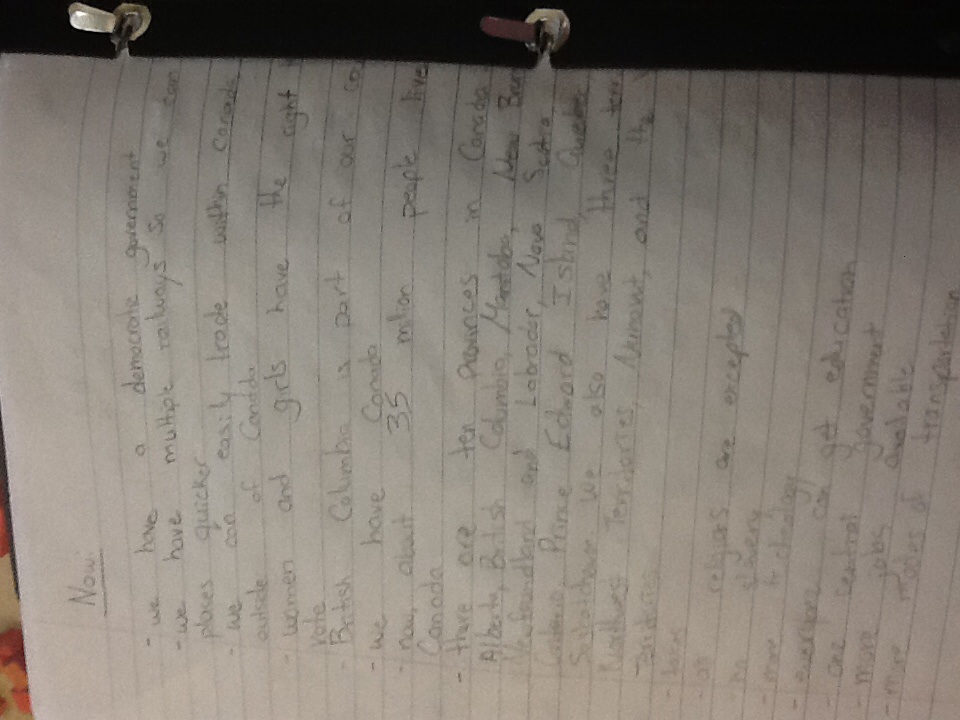 Now:
- we have a democratic government
- we have multiple railways so we can
places quicker
- we can easily trade within Canada
outside of Canada
- women and girls have the right
vote
- British Columbia is part of our
- we have Canada
- now, about 35 million people live
Canada
- there are ten provinces in Canada
Alberta, British Columbia, Manitoba, New
Newfoundland and Labrador, Nova Scotia
Prince Edward Island, Quebec
we also have three
Territories, Nunavut, and the
all religions are excepted
no slavery
- more
- everyone can get education
- one central government
- more jobs available
- more modes of transportation